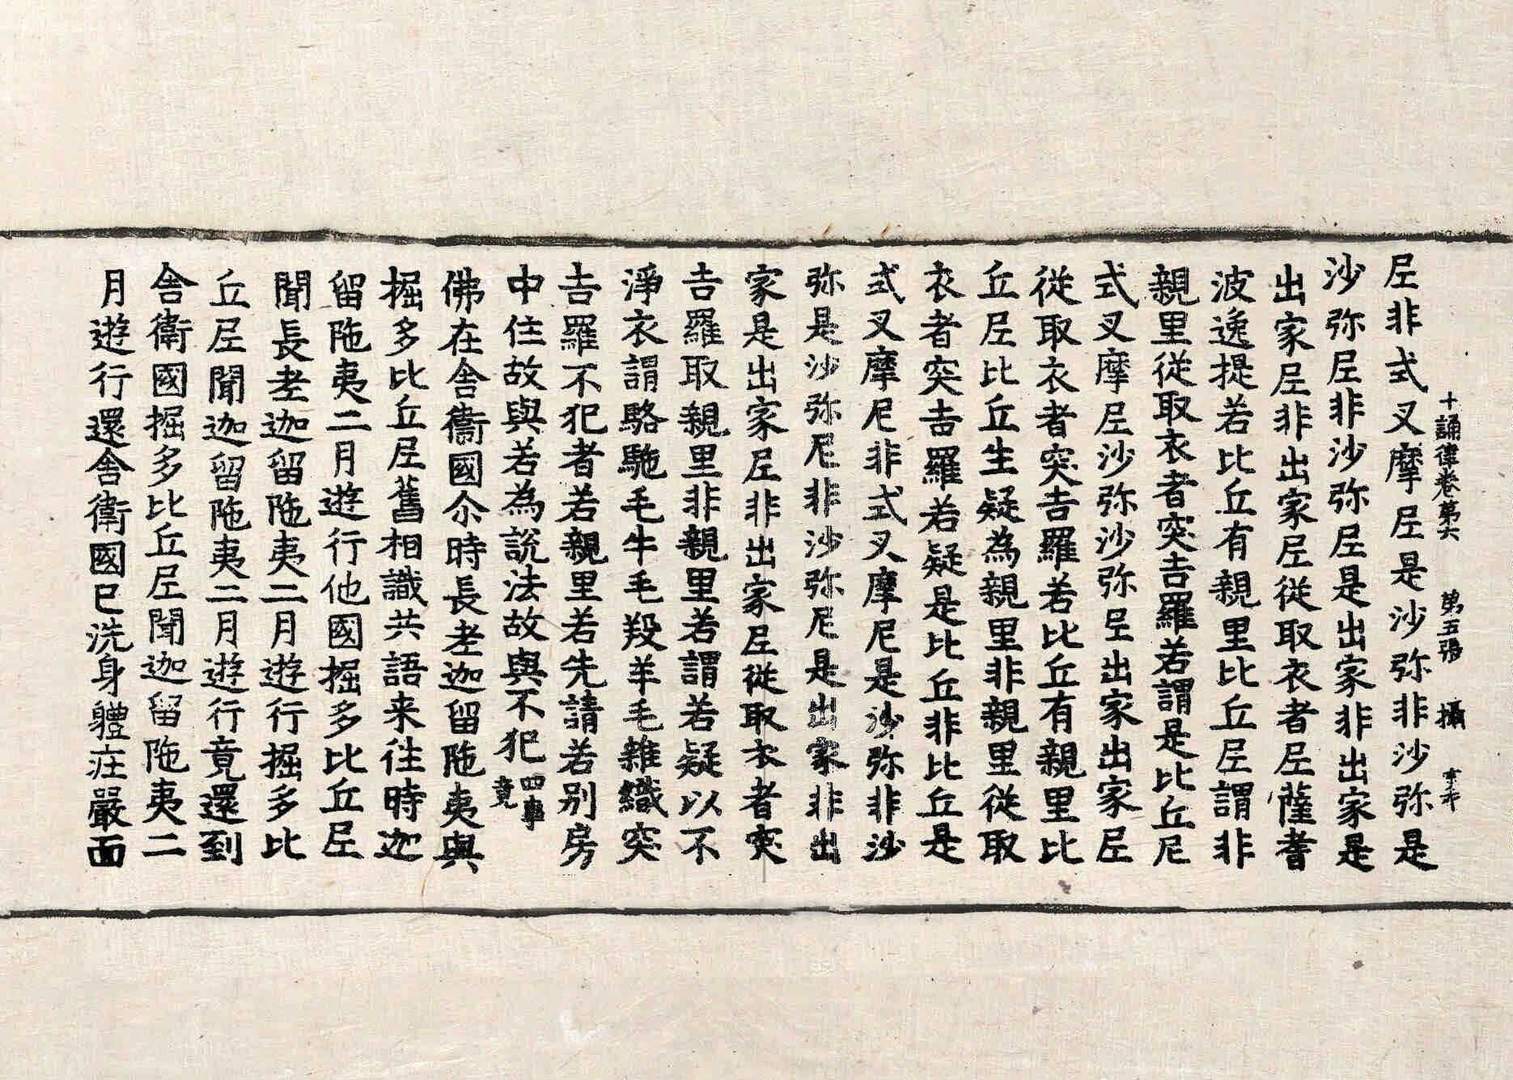 十誦律卷第六　第五張　攝
尼非式叉摩尼是沙弥非沙弥是
沙弥尼非沙弥尼是出家非出家是
出家尼非出家尼從取衣者尼薩耆
波逸提若比丘有親里比丘尼謂非
親里從取衣者突吉羅若謂是比丘尼
式叉摩尼沙弥沙弥尼出家出家尼
從取衣者突吉羅若比丘有親里比
丘尼比丘生疑為親里非親里從取
衣者突吉羅若疑是比丘非比丘是
式叉摩尼非式叉摩尼是沙弥非沙
弥是沙弥尼非沙弥尼是出家非出
家是出家尼非出家尼從取衣者突
吉羅取親里非親里若謂若疑以不
淨衣謂駱駞毛牛毛羖羊毛雜織突
吉羅不犯者若親里若先請若別房
中住故與若為說法故與不犯四事竟
佛在舍衞國尒時長老迦留陁夷與
掘多比丘尼舊相識共語来往時迦
留陁夷二月遊行他國掘多比丘尼
聞長老迦留陁夷二月遊行掘多比
丘尼聞迦留陁夷二月遊行竟還到
舍衞國掘多比丘尼聞迦留陁夷二
月遊行還舍衞國已洗身體莊嚴面